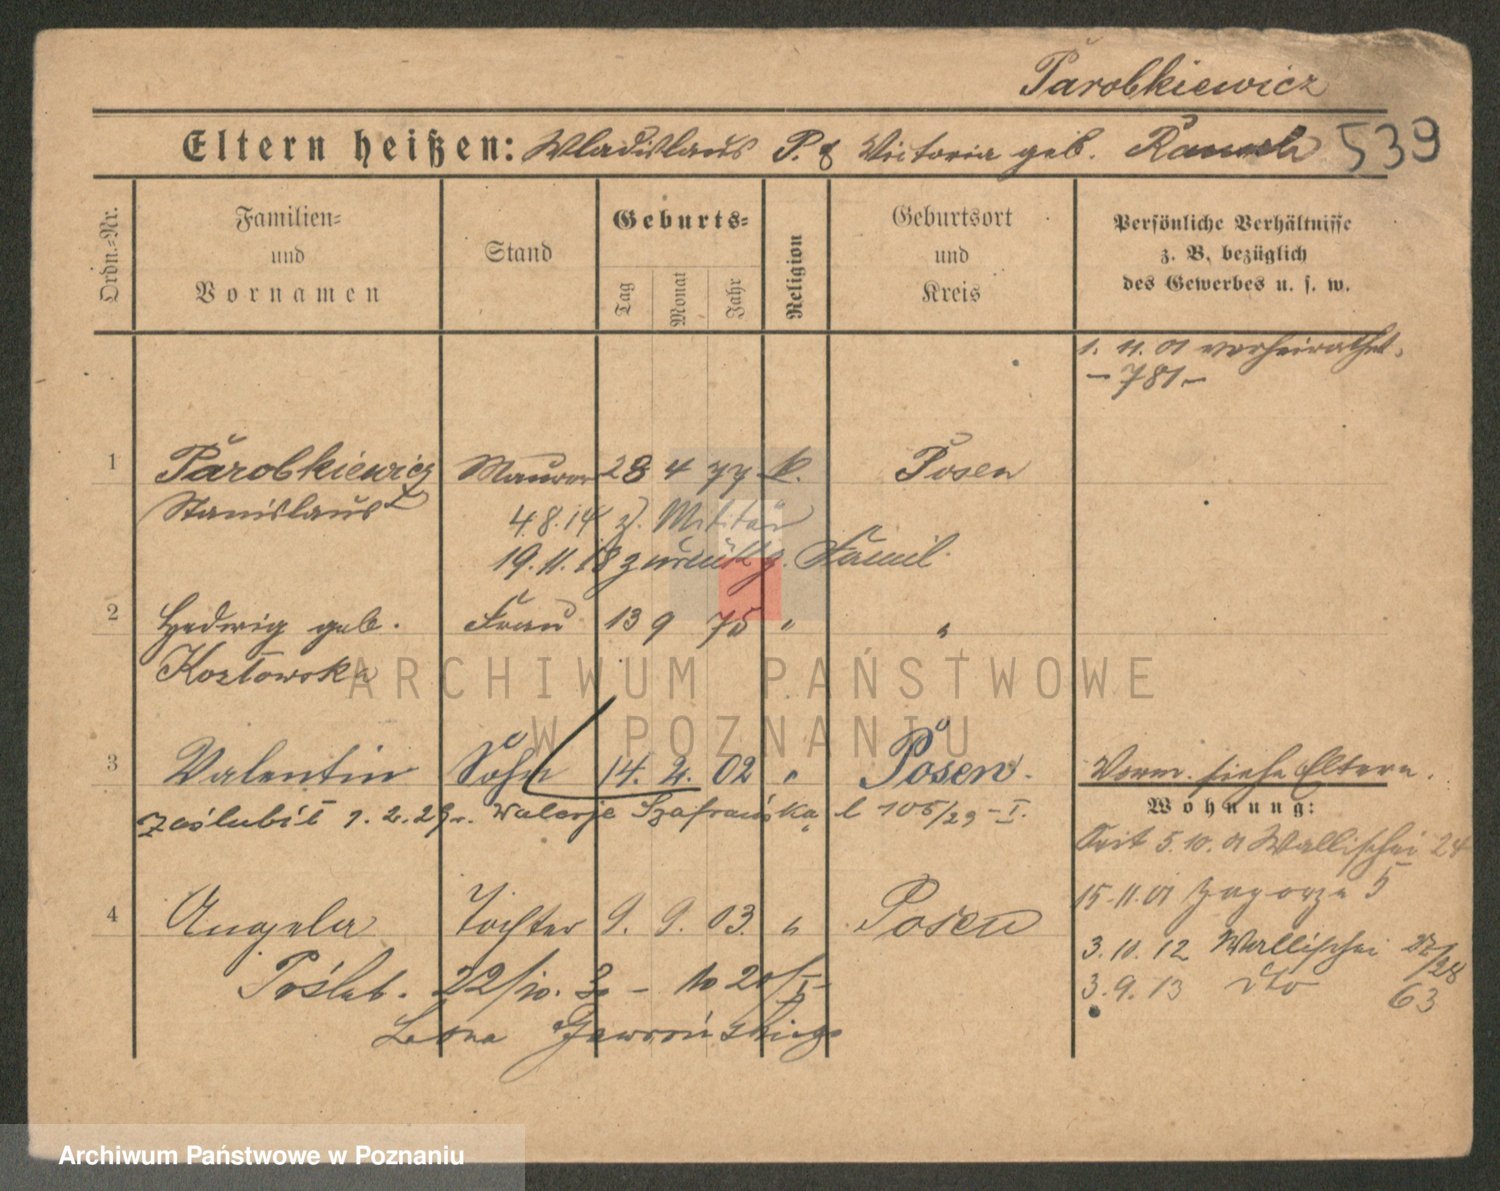 Parobkiewicz
Eltern heißen: Wladislaus P. & Victoria geb. 539
Ordn.-Nr.
Familien-
und
Vornamen
Stand
Geburts-
Tag
Monat
Jahr
Religion
Geburtsort
und
Kreis
Persönliche Verhältnisse
z. B. bezüglich
des Gewerbes u. s. w.
1. 11. 01 verheirathet.
– 781 –
1 Parobkiewicz Maurer 28 4 77 k. Posen
Stanislaus
4.8.14 z. Militär
19.11.18 zurück z. Famil.
2 Hedwig geb. Frau 13 9 75 " "
Kozłowska
3 Valentin Sohn 14. 2. 02 " Posen.
Vorm. siehe Eltern.
zaślubił 9. 2. 29 r. Walerję Szafrańską l 106/29 – I.
Wohnung:
Seit 5.10.01 Wallischei 24
15.11.01 Zagorze 5
4 Angela Tochter 9. 9. 03. " Posen
3.10.12 Wallischei 27/28
3.9.13 dto 63
Poślub. 22/10.
Leona
ARCHIWUM PAŃSTWOWE
W POZNANIU
Archiwum Państwowe w Poznaniu